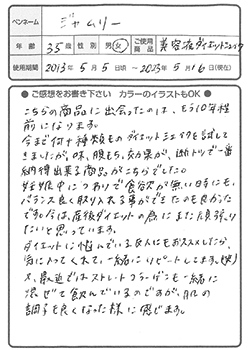 ペンネーム ジャムリー
年齢 35歳 性別 男・女 ご使用商品 美容液ダイエットシェイク
使用期間 2013年5月5日頃～2023年5月16日(現在)
● ご感想をお書き下さい カラーのイラストもOK ●
こちらの商品に出会ったのは、もう10年程
前になります。
今まで何十種類ものダイエットシェイクを試して
きましたが、味、腹もち、効果が、断トツで一番
納得出来る商品がこちらでした。
妊娠中につわりで食欲が無い日にも、
バランス良く取り入れる事ができたのも良かった
です。今は、産後ダイエットの為にまた頑張り
たいと思っています。
ダイエットに悩んでいる友人にもおススメしたら、
気に入ってくれて、一緒にリピートします。(笑)
又、最近ではストレートコラーゲンも一緒に
混ぜて飲んでいるのですが、肌の
調子も良くなった様に感じます。